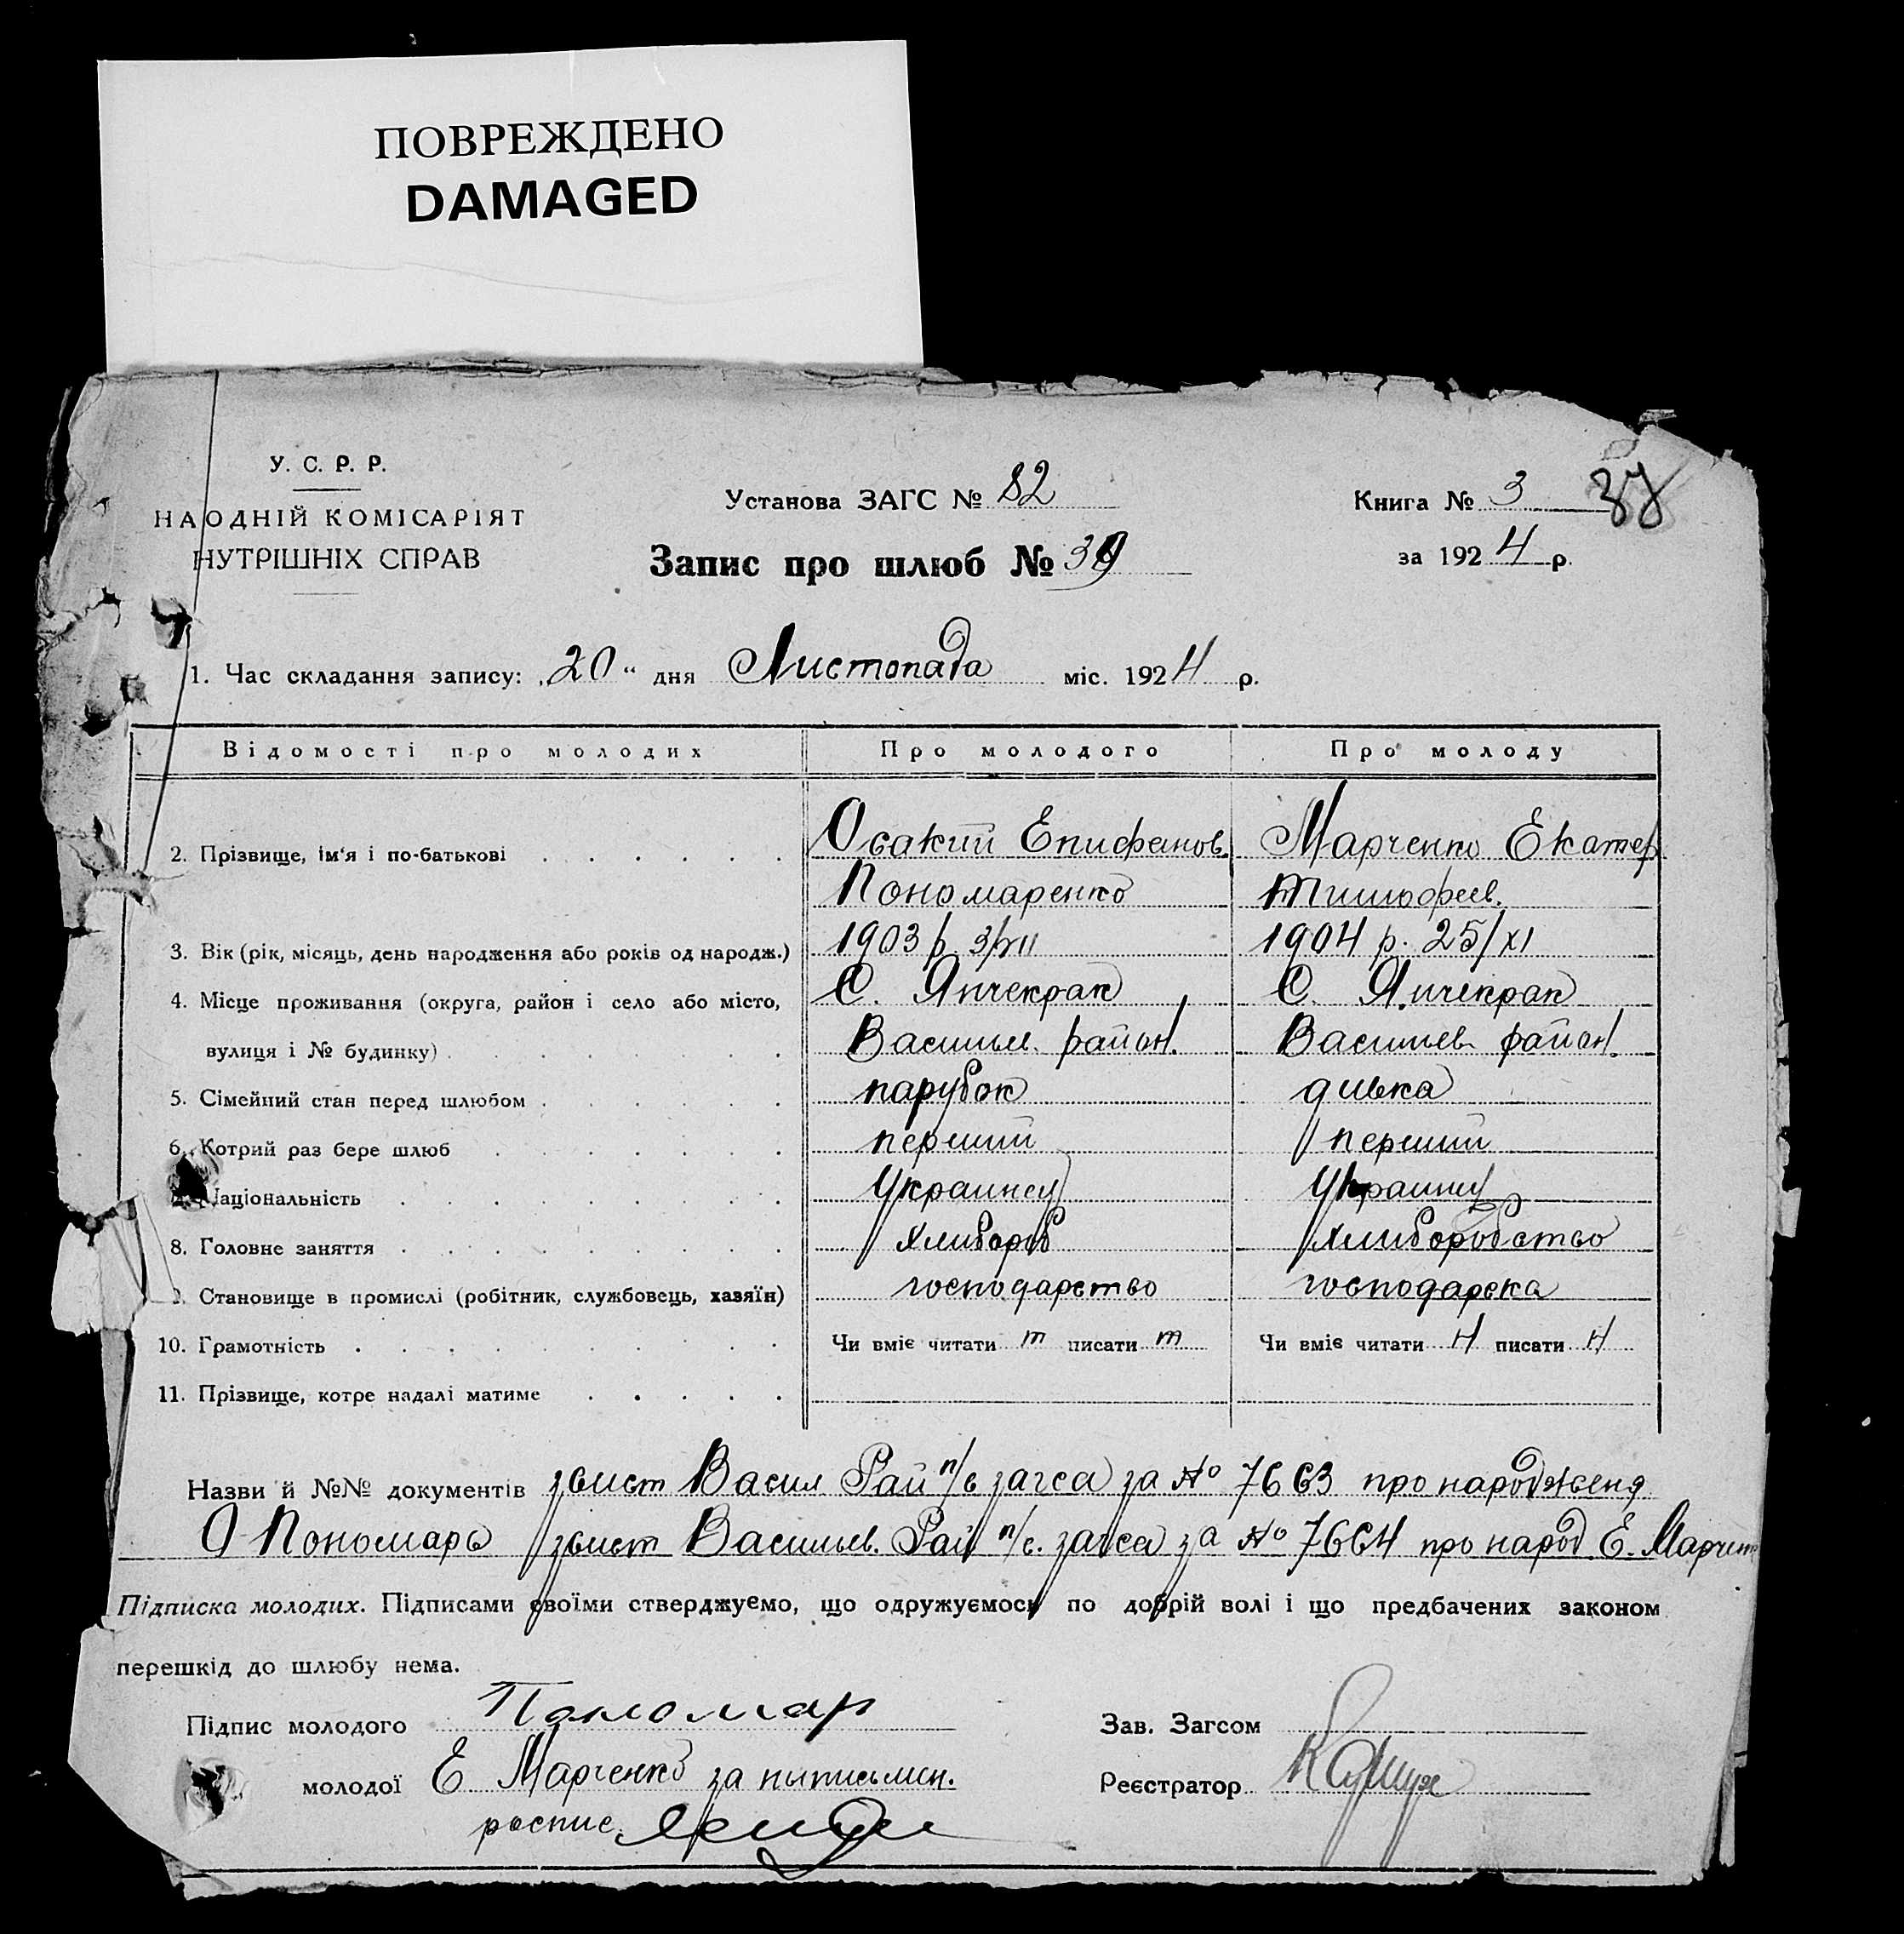 ПОВРЕЖДЕНО
DAMAGED
У. С. Р. Р.
НАОДНІЙ КОМІСАРІЯТ
НУТРІШНІХ СПРАВ
Установа ЗАГС № 82
Книга № 3
37
Запис про шлюб № 39
за 1924 р.
1. Час складання запису: „20“ дня Листопада міс. 1924 р.
Відомості про молодих Про молодого Про молоду
Осакий Епифанов. Марченко Екатер
2. Прізвище, ім'я і по-батькові
Пономаренко Тимофеев.
3. Вік (рік, місяць, день народження або років од народж.) 1903 р. 1904 р. 25/XI
4. Місце проживання (округа, район і село або місто, С. Янчекрак С. Янчекрак
вулиця і № будинку) Васильев. район. Васильев район.
5. Сімейний стан перед шлюбом парубок дивка
6. Котрий раз бере шлюб перший перший
Національність Украинец Украинц
8. Головне заняття хлибороб хлиборобство
9. Становище в промислі (робітник, службовець, хазяїн) господарство господарска
10. Грамотність Чи вміє читати т писати т Чи вміє читати Н писати Н
11. Прізвище, котре надалі матиме
Назви й №№ документів звист Васил Рай п/в загса за № 7663 про народженя
О Пономарь звист Васильев. Рай п/в. загса за № 7664 про народ Е. Марчен
Підписка молодих. Підписами своїми стверджуємо, що одружуємось по добрій волі і що предбачених законом
перешкід до шлюбу нема.
Підпис молодого Пономар
Зав. Загсом
молодої Е Марченко за ныписьмен.
Реєстратор
роспис.